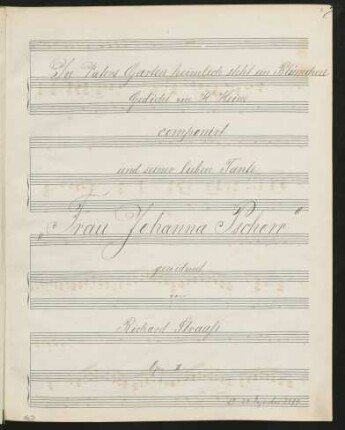 In Vaters Garten heimlich steht ein Blümchen
Gedicht von H. Heine
componirt
und seiner lieben Tante
„Frau Johanna Pschorr“
gewidmet
von
Richard Strauss
Op.